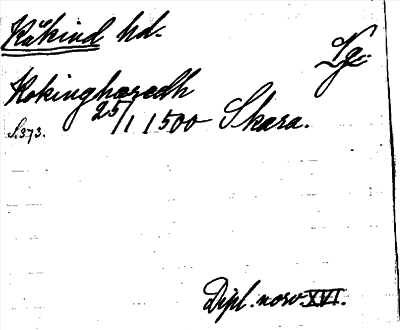 Kåkind hd.
Vg.
Kokinghæredh
25/1 1500 Skara.
S. 373.
Dipl. norv. XVI.